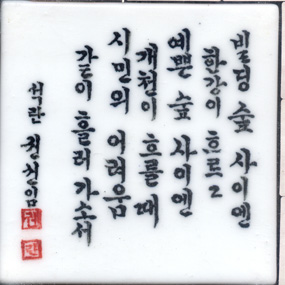 빌딩 숲 사이엔
한강이 흐르고
예쁜 숲 사이엔
개천이 흐를 때
시민의 어려움
같이 흘러가소서
석란